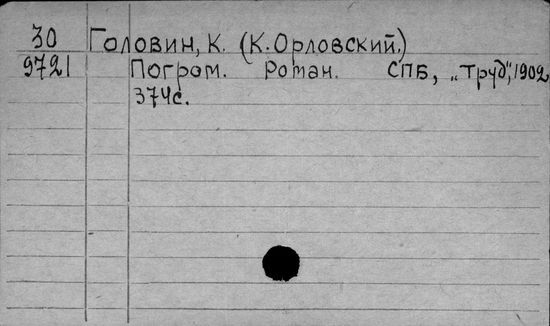 30 Головин, К. (К. Орловский.)
9721 Погром. Роман. СПБ, „Труд", 1902
374с.